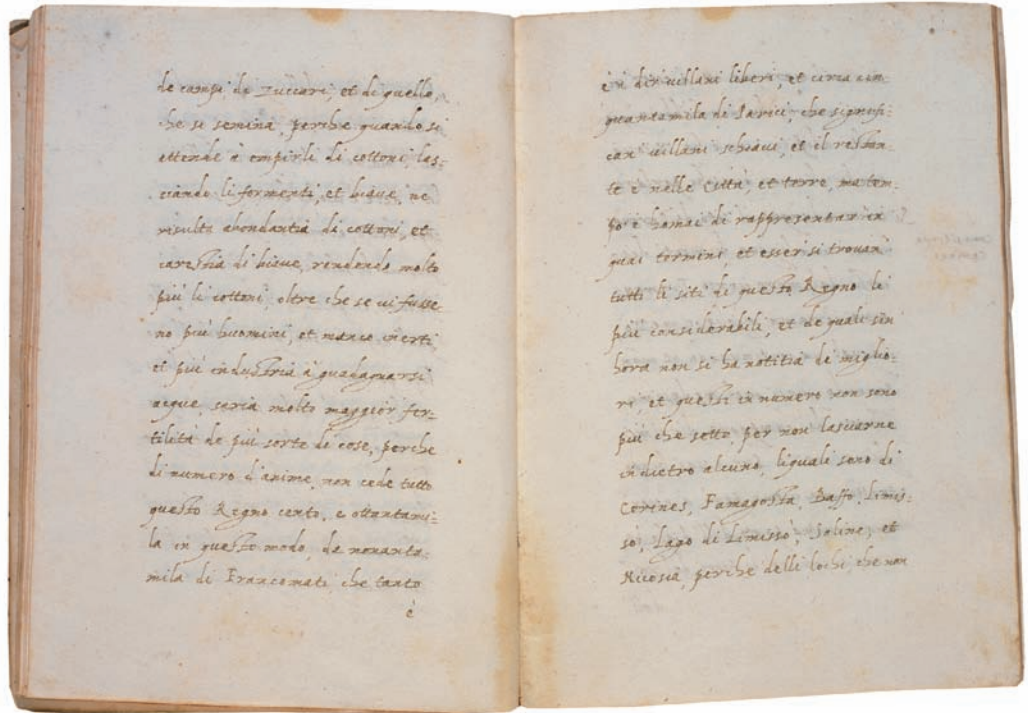 de campi di zuccari, et di quello,
che si semina, perche quando si
attende à empirli di cottoni, las=
ciando li formenti, et biaue, ne
risulta abondantia di cottoni, et
carestia di biaue, rendendo molto
più li cottoni, oltre che se ui fusse
no più huomini, et manco inerti
et più industria à guadagnarsi
acque, saria molto maggior fer=
tilità de più sorte di cose, perche
di numero d'anime, non cede tutto
questo Regno cento, e ottantami=
la in questo modo, de nonanta
mila di Francomati che tanto
è
è à dir uillani liberi, et circa cin
quantamila di Parici, che signifi=
can uillani schiaui, et il restan
te è nelle città, et terre, ma tem
po è homai di rappresentar in
quai termini et esser si trouan
tutti li siti di questo Regno li
più considerabili, et de quali sin
hora non si ha notitia de miglio=
ri, et questi in numero non sono
più che sette, per non lasciarne
in dietro alcuno, liquali sono di
Cerines, Famagosta, Baffo, Limis=
sò, Lago di Limissò, Saline, et
Nicosia, perche delli lochi, che non